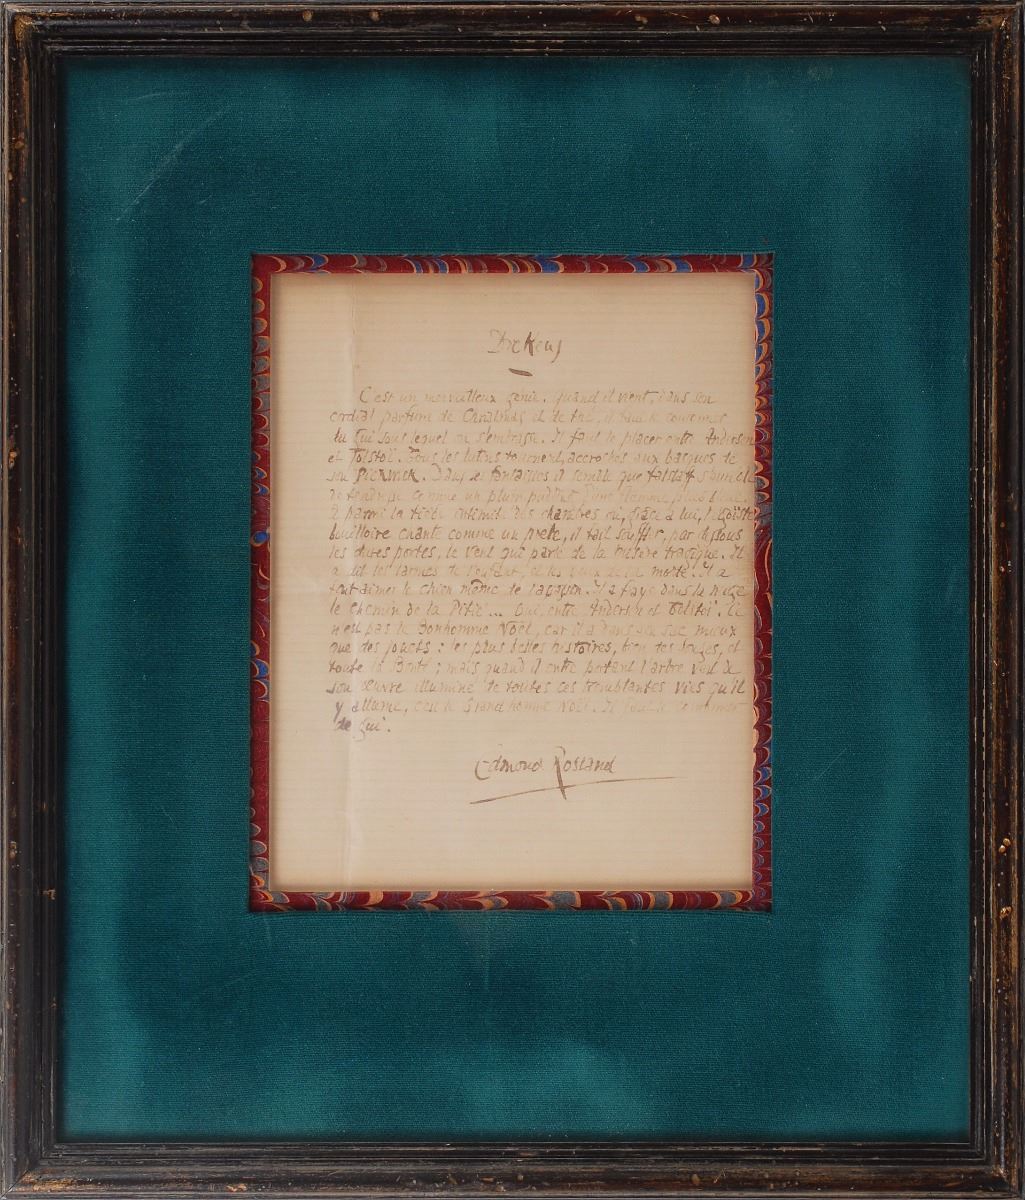 Dickens
C'est un merveilleux génie. Quand il vient, dans son
cordial parfum de Christmas et de thé, il faut le couronner
du gui sous lequel on s'embrasse. Il faut le placer entre Andersen
et Tolstoï. Tous les lutins tournent, accrochés aux basques de
son Pickwick. Dans ses fantaisies il semble que Falstaff
de tendresse comme un plum pudding d'une flamme
Et parmi la tiède intimité des chambres où, grâce à lui,
bouilloire chante comme un poète, il fait souffler, par dessous
les dures portes, le vent qui parle de la misère tragique. Il
a dit les larmes de l'enfant, et les yeux de la morte. Il a
fait aimer le chien même de l'assassin. Il a frayé dans la neige
le chemin de la Pitié... Oui, entre Andersen et Tolstoï. Ce
n'est pas le Bonhomme Noël, car il a dans son sac mieux
que des jouets : les plus belles histoires, tous les songes, et
toute la Bonté ; mais quand il entre portant l'arbre vert de
son œuvre illuminé de toutes ces tremblantes vies qu'il
y allume, c'est le Grand homme Noël. Il faut le couronner
de gui.
Edmond Rostand